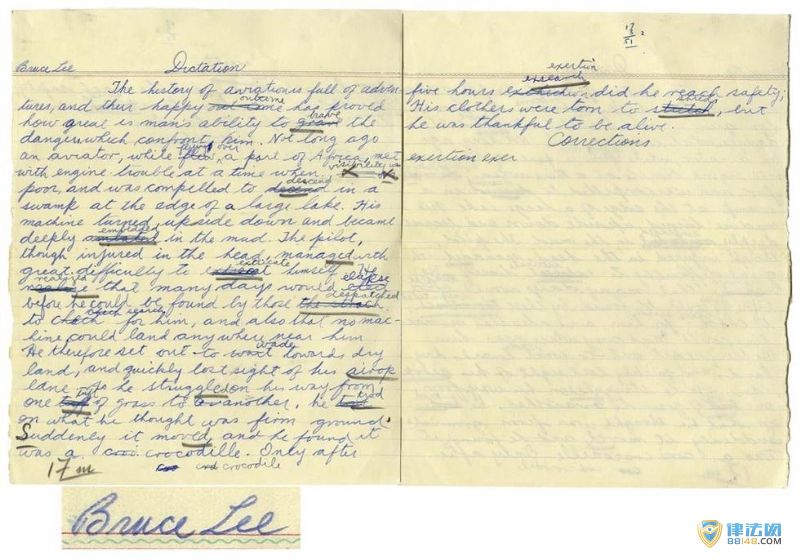 Bruce Lee Dictation
The history of aviation is full of adven-
outcome
tures, and their happy has proved
brave
how great is man's ability to the
dangers which confront him. Not long ago
flying over
an aviator, while a part of Africa, met
visibility was
with engine trouble at a time when
descend
poor, and was compelled to in a
swamp at the edge of a large lake. His
machine turned, up side down and became
embaged
deeply in the mud. The pilot,
though injured in the head, managed with
exticate
great difficulty to himself,
realized elapse
that many days would
despatched
before he could be found by those
which search
to for him, and also that no mac-
hine could land any where near him
wade
He therefore set out to towards dry
land, and quickly lost sight of his airop
lane. As he struggled on his way from
tuft
one of grass to another, he trod
on what he thought was firm ground.
Suddenly it moved, and he found it
was a crocodille. Only after
crocodile
17 m
13
51
exertion
five hours did he reach safety;
shred
His clothers were torn to , but
he was thankful to be alive.
Corrections
exertion exer
Bruce Lee
律法网
88148.com